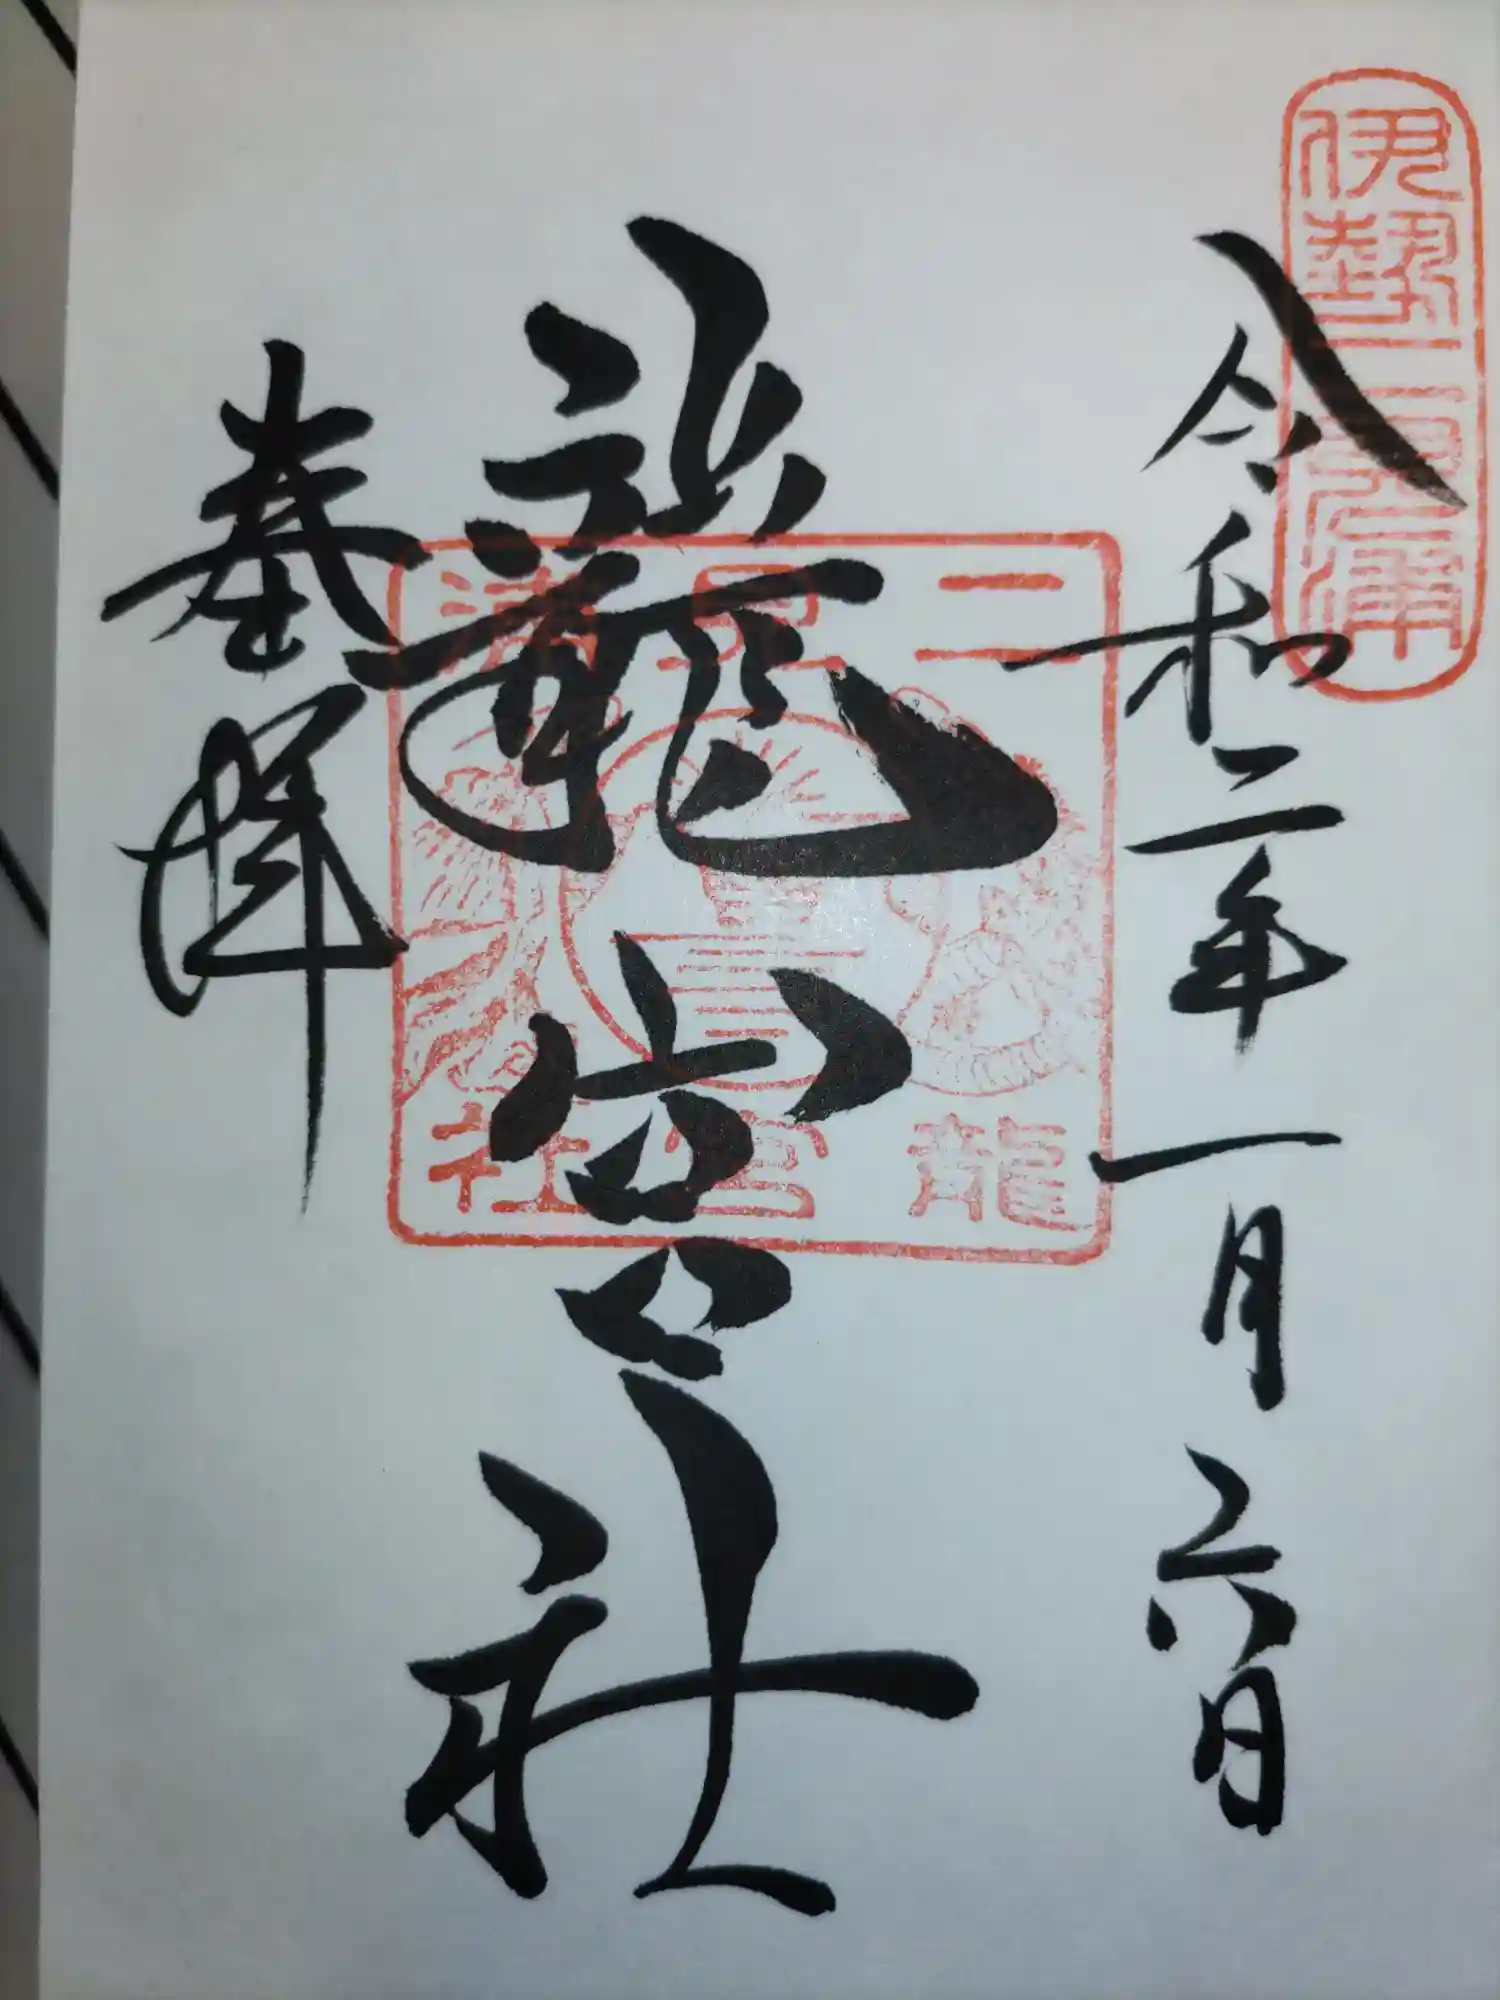 伊勢二見浦
令和二年一月六日
龍宮社
二見浦
龍宮社
奉拝